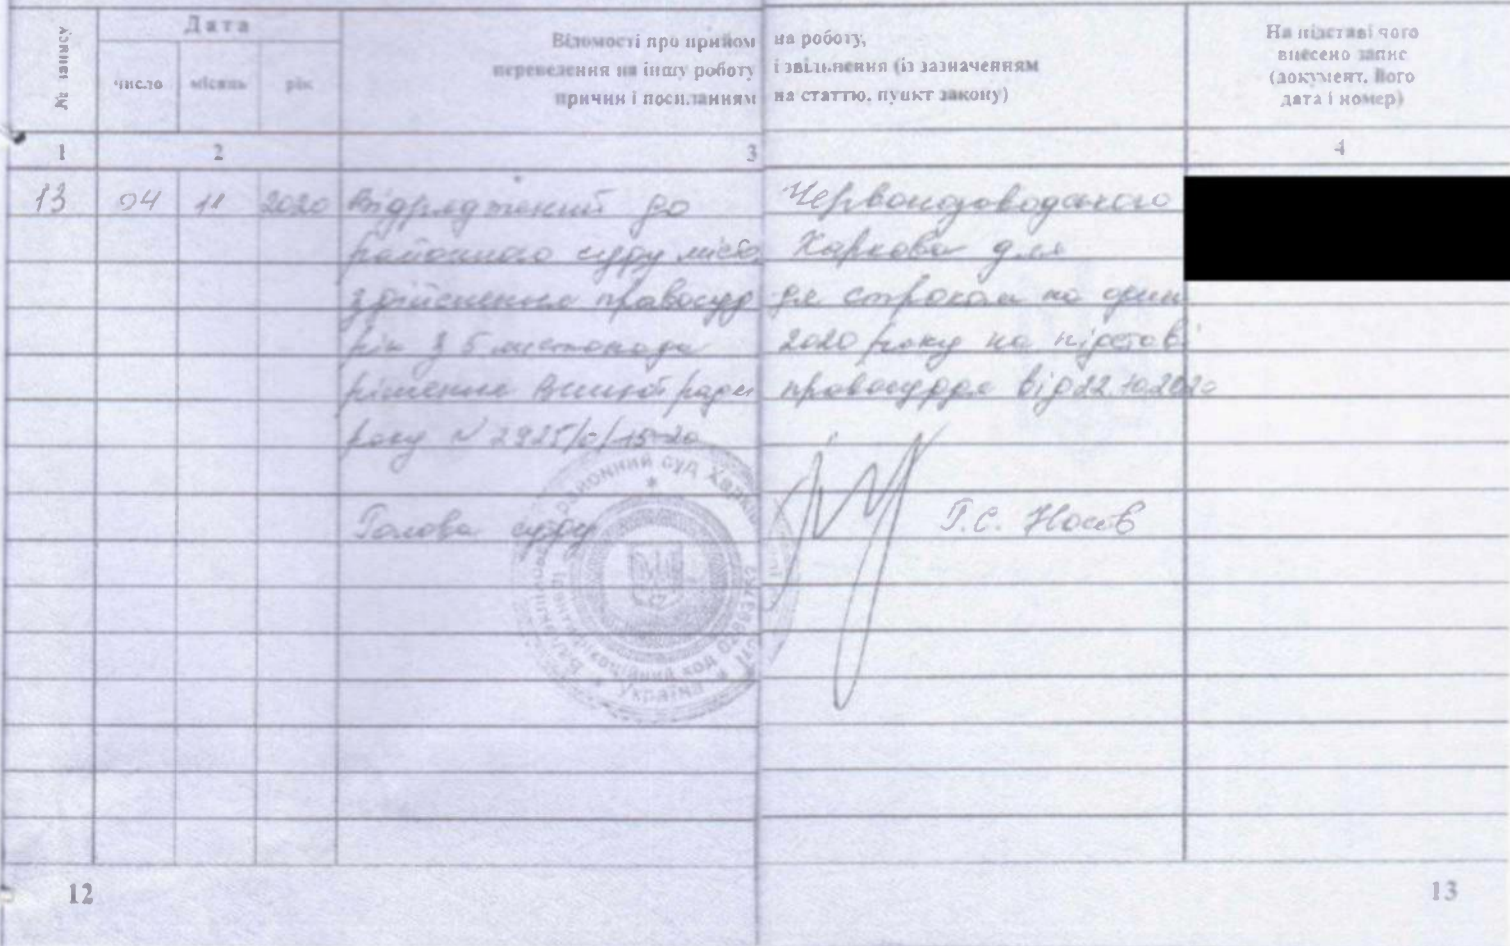 № запису
Дата
число місяць рік
Відомості про прийом на роботу,
переведення на іншу роботу і звільнення (із зазначенням
причин і посиланням на статтю, пункт закону)
На підставі чого
внесено запис
(документ, його
дата і номер)
1 2 3 4
13 04 11 2020 Відряджений до Червонозаводського
районного суду міста Харкова для
здійснення правосуддя строком на один
рік з 5 листопада 2020 року на підставі
рішення Вищої ради правосуддя від 22.10.2020
року № 2925/0/15-20
Голова суду Г.С. Носов
районний суд Харківської
Ідентифікаційний код
Україна
12
13